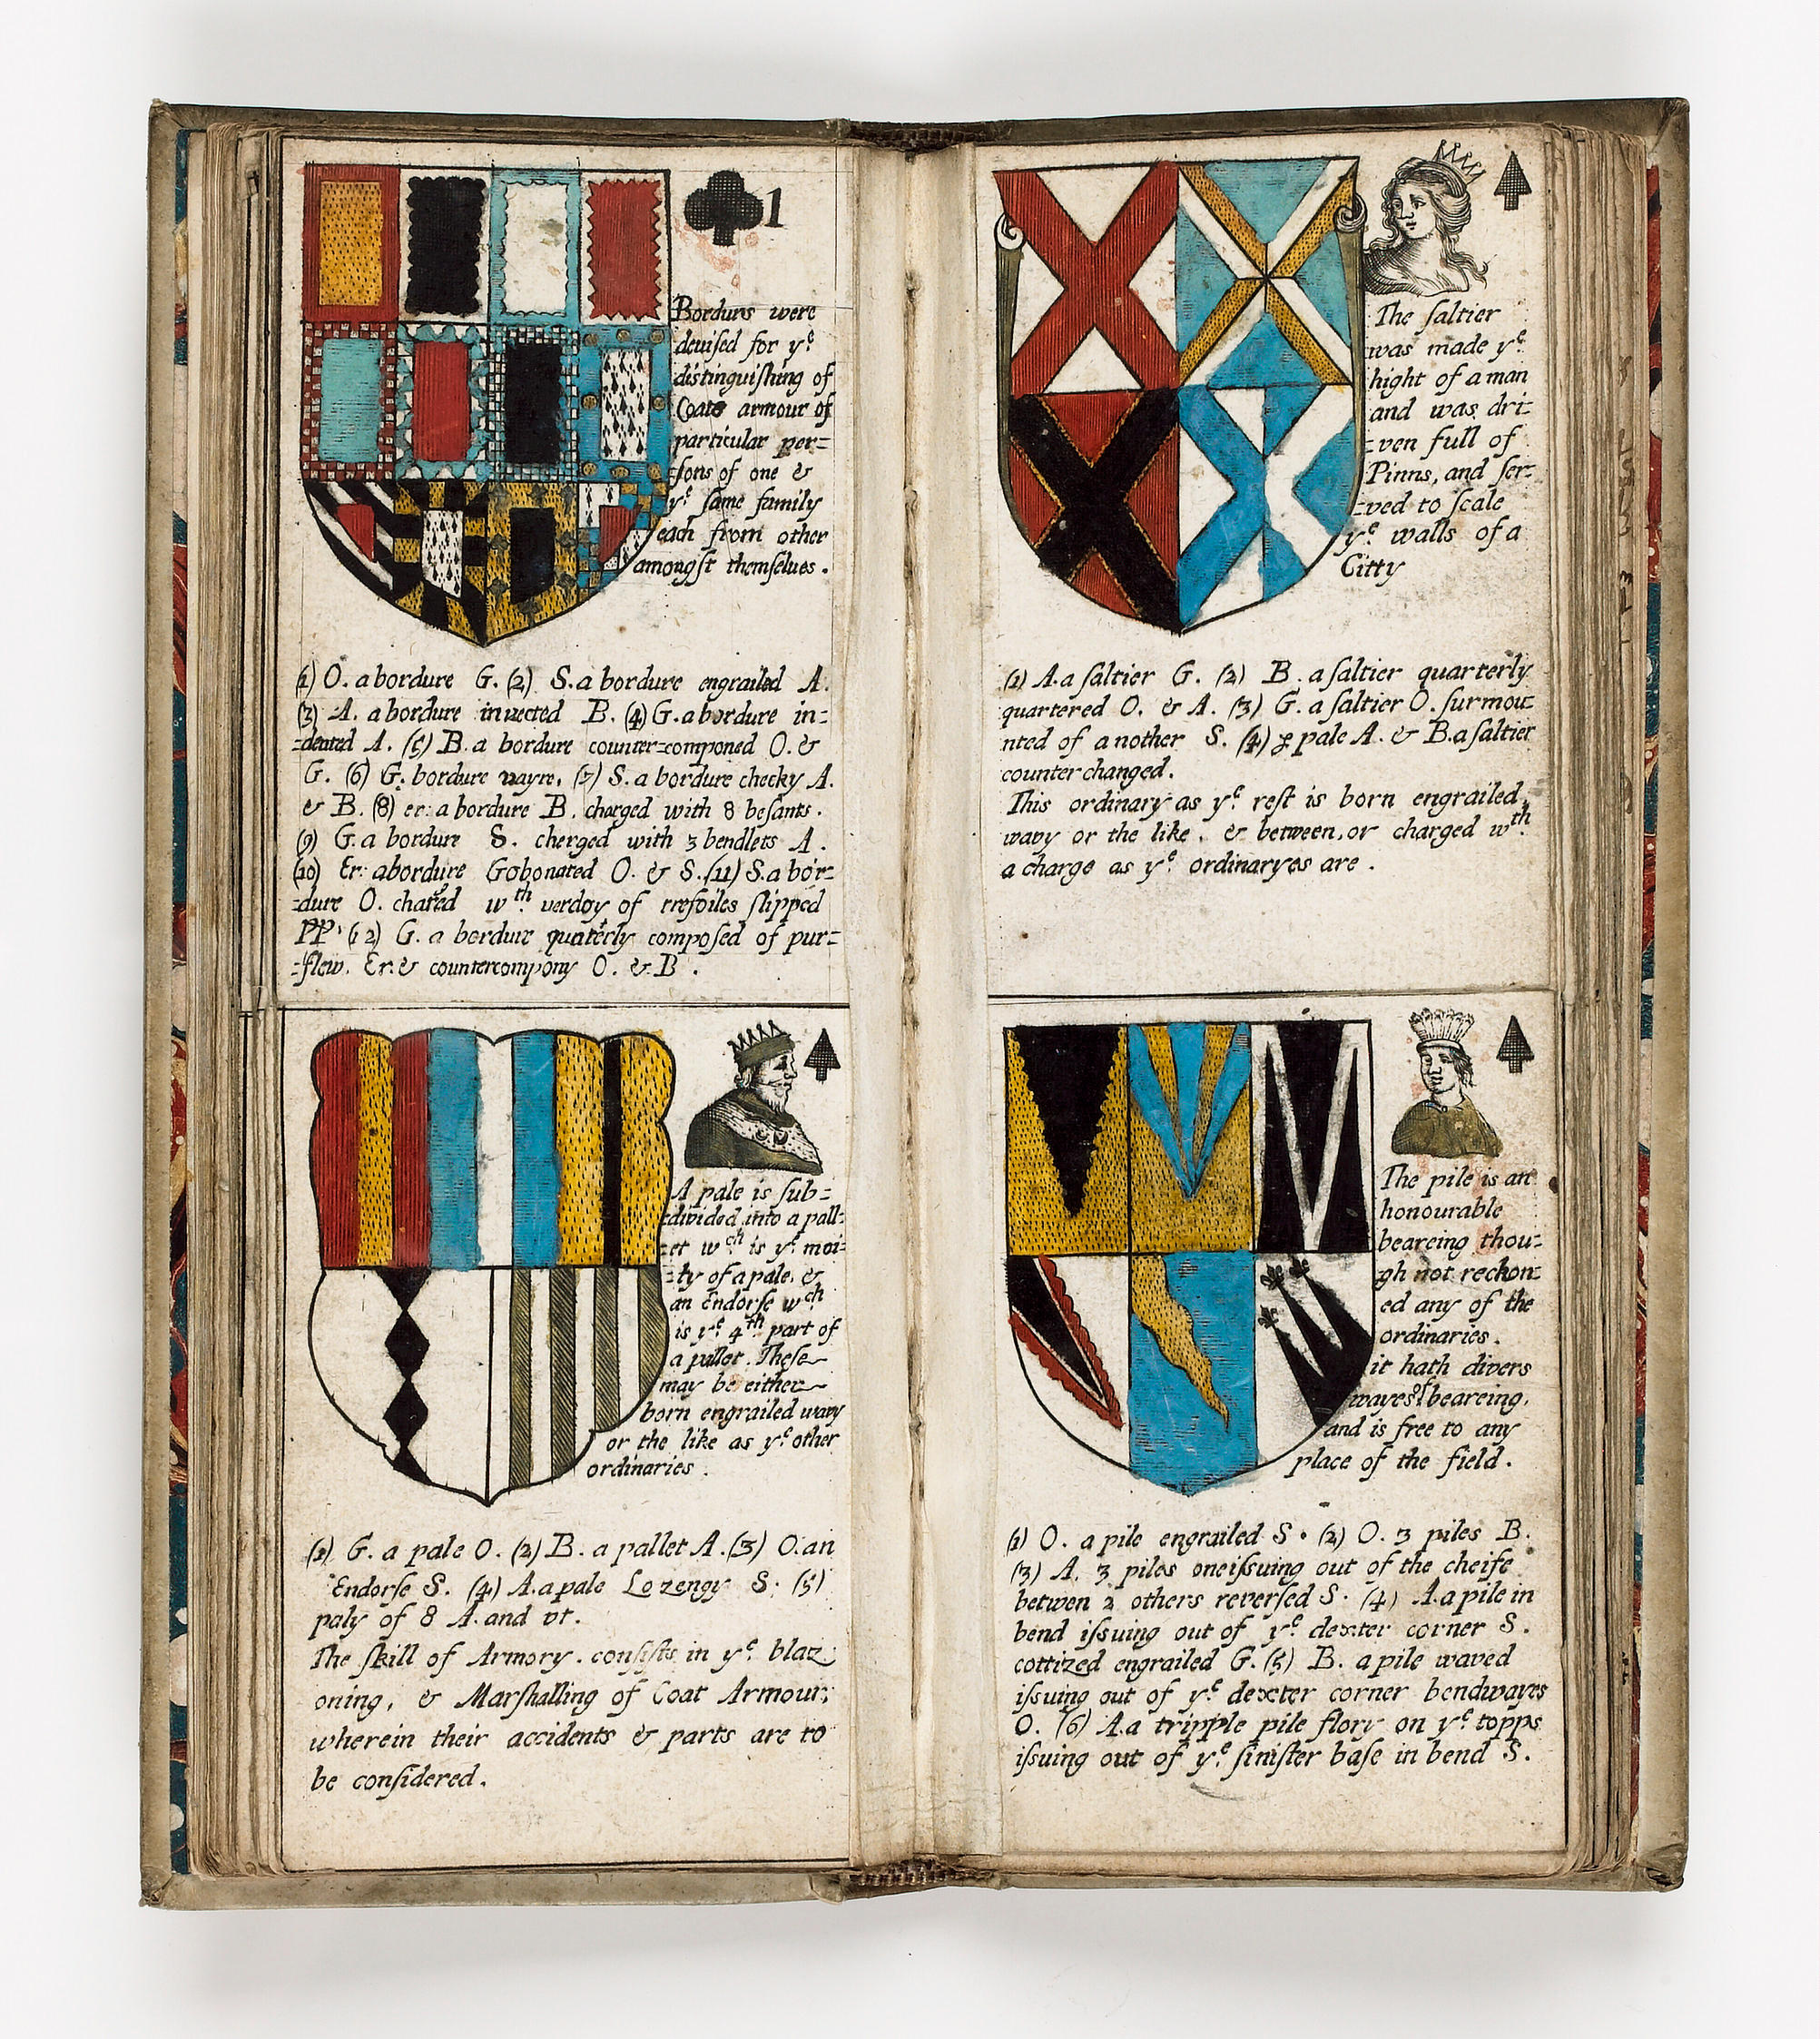 1
Bordurs were
deuiſed for yᵉ
diſtinguiſhing of
Coats armour of
particular per=
=ſons of one &
yᵉ ſame family
each from other
amongſt themſelues.
(1) O. a bordure G. (2) S. a bordure engrailed A.
(3) A. a bordure invected B. (4) G. a bordure in=
=dented A. (5) B. a bordure counter=componed O. &
G. (6) G. bordure vayre. (7) S. a bordure checky A.
& B. (8) er: a bordure B. charged with 8 beſants.
(9) G. a bordure S. cherged with 3 bendlets A.
(10) Er: a bordure Gobonated O. & S. (11) S. a bor=
=dure O. charged wᵗʰ verdoy of trefoiles ſlipped
PP. (12) G. a bordure quaterly compoſed of pur=
=flew. Er. & countercompony O. & B.
A pale is ſub=
=divided into a pall=
=et wᶜʰ is yᵉ moi=
=ty of a pale, &
an Endorſe wᶜʰ
is yᵉ 4ᵗʰ part of
a pallet. Theſe
may be either
born engrailed wavy
or the like as yᵉ other
ordinaries.
(1) G. a pale O. (2) B. a pallet A. (3) O. an
Endorſe S. (4) A. a pale Lozengy S. (5)
paly of 8 A. and vt.
The ſkill of Armory. conſiſts in yᵉ blaz=
oning, & Marſhalling of Coat Armour;
wherein their accidents & parts are to
be conſidered.
The ſaltier
was made yᵉ
hight of a man
and was dri=
=ven full of
Pinns, and ſer=
=ved to ſcale
yᵉ walls of a
Citty
(1) A. a ſaltier G. (2) B. a ſaltier quarterly
quartered O. & A. (3) G. a ſaltier O. ſurmou=
nted of another S. (4) ꝑ pale A. & B. a ſaltier
counterchanged.
This ordinary as yᵉ reſt is born engrailed,
wavy or the like. & between, or charged wᵗʰ
a charge as yᵉ ordinaryes are.
The pile is an
honourable
beareing thou=
gh not reckon=
ed any of the
ordinaries.
it hath divers
wayes of beareing,
and is free to any
place of the field.
(1) O. a pile engrailed S. (2) O. 3 piles B.
(3) A. 3 piles one iſsuing out of the cheife
betwen 2 others reverſed S. (4) A. a pile in
bend iſsuing out of yᵉ dexter corner S.
cottized engrailed G. (5) B. a pile waved
iſsuing out of yᵉ dexter corner bendwayes
O. (6) A. a tripple pile flory on yᵉ topps
iſsuing out of yᵉ ſiniſter baſe in bend S.